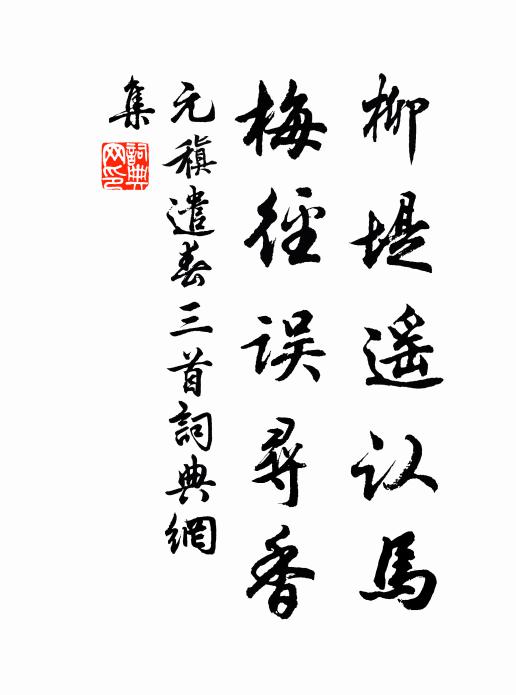 柳堤遥认馬
梅徑误尋香
元稹遣春三首詞典網
集
詞典
网印